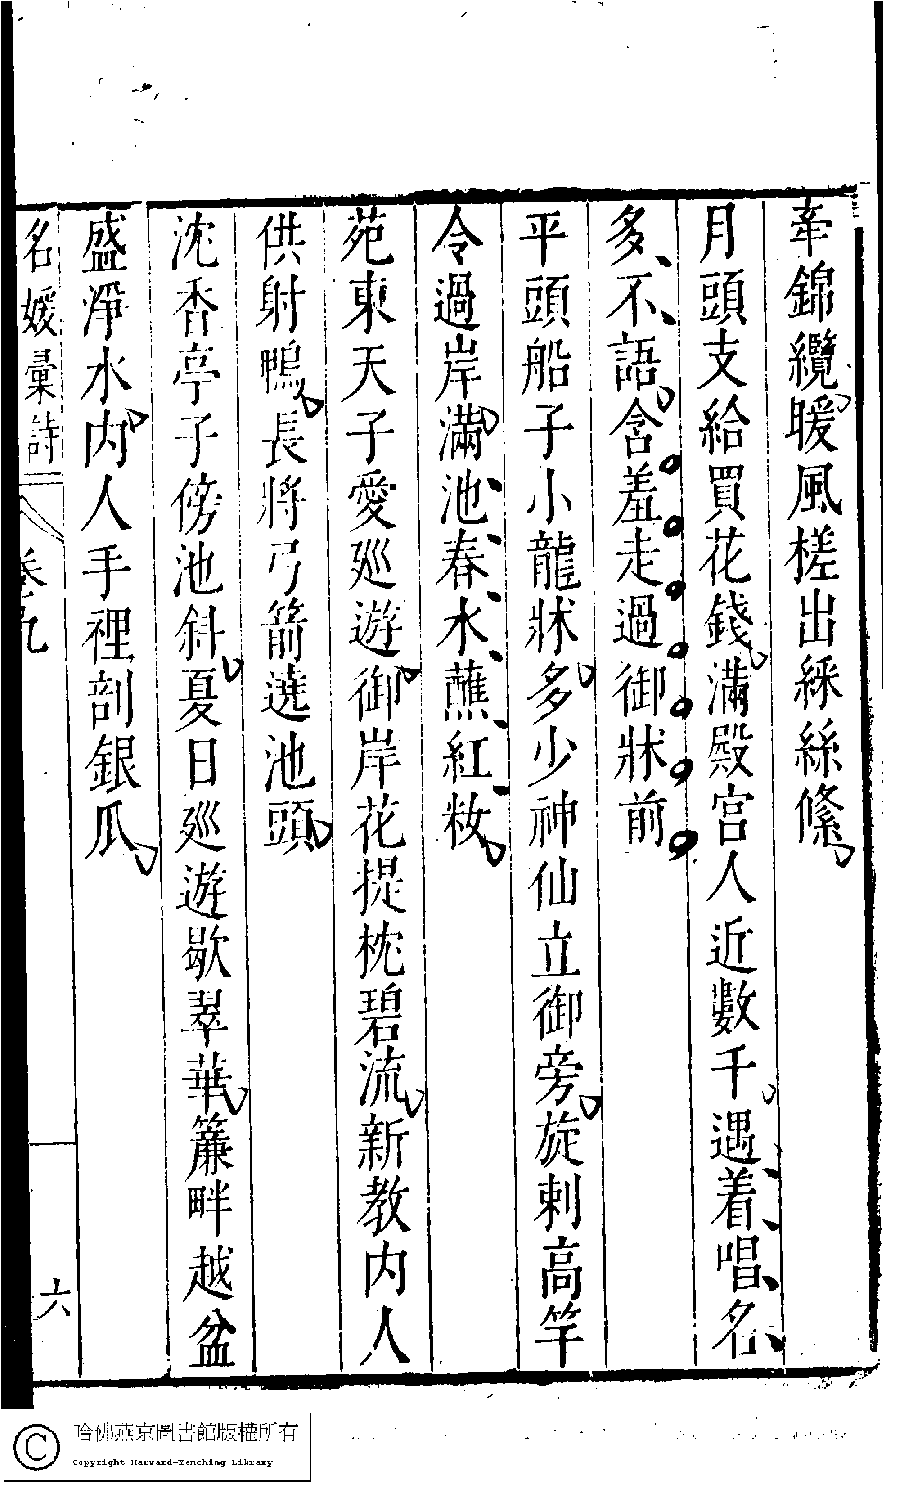 牽錦纜暖風搓出綵絲絛
月頭支給買花錢滿殿宮人近數千遇着唱名
多不語含羞走過御牀前
平頭船子小龍牀多少神仙立御旁旋刺高竿
令過岸滿池春水蘸紅妝
苑東天子愛廵遊御岸花提枕碧流新教内人
供射鴨長將弓箭遶池頭
沈香亭子傍池斜夏日廵遊歇翠華簾畔越盆
盛淨水内人手裡剖銀瓜
名媛彙詩
卷九
六
哈佛燕京圖書館版權所有
Copyright Harvard-Yenching Library